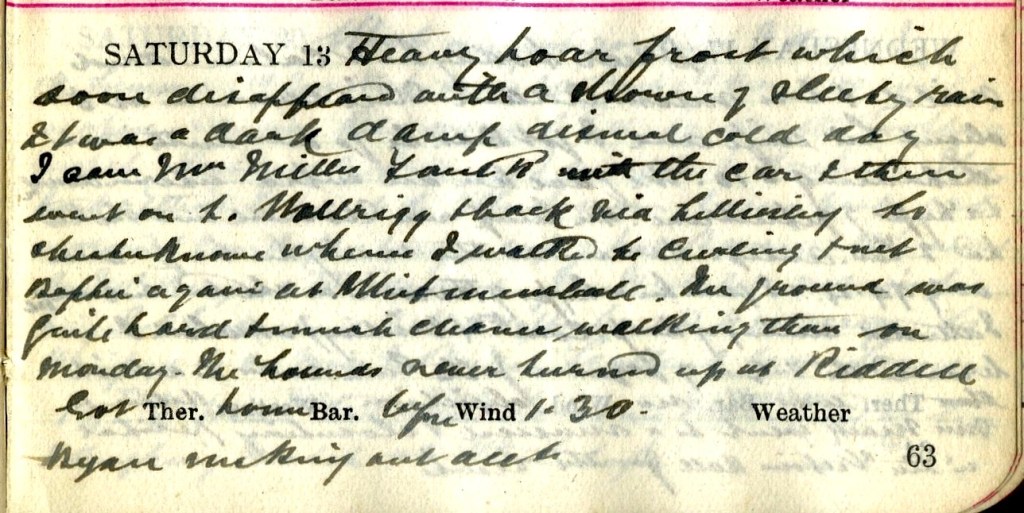 SATURDAY 13 Heavy hoar frost which
soon disappeared with a shower of sleety rain
& it was a dark damp dismal cold day
I saw Mr Miller with the car & then
went on to Wollrigg & back via Lilliesley to
where I walked to Curling & met
again at Whitmuirhall. The ground was
quite hard & much cleaner walking than on
Monday. The hounds never turned up at Riddell
Got Ther. home Bar. before Wind 1-30. Weather
Began making out acct
63